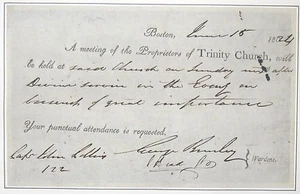 Boston, June 15 1824
A meeting of the Proprietors of Trinity Church, will
be held at said Church on Sunday next after
Divine service in the Eveng on
business of great importance
Your punctual attendance is requested.
George
Capt John Wardens.
122